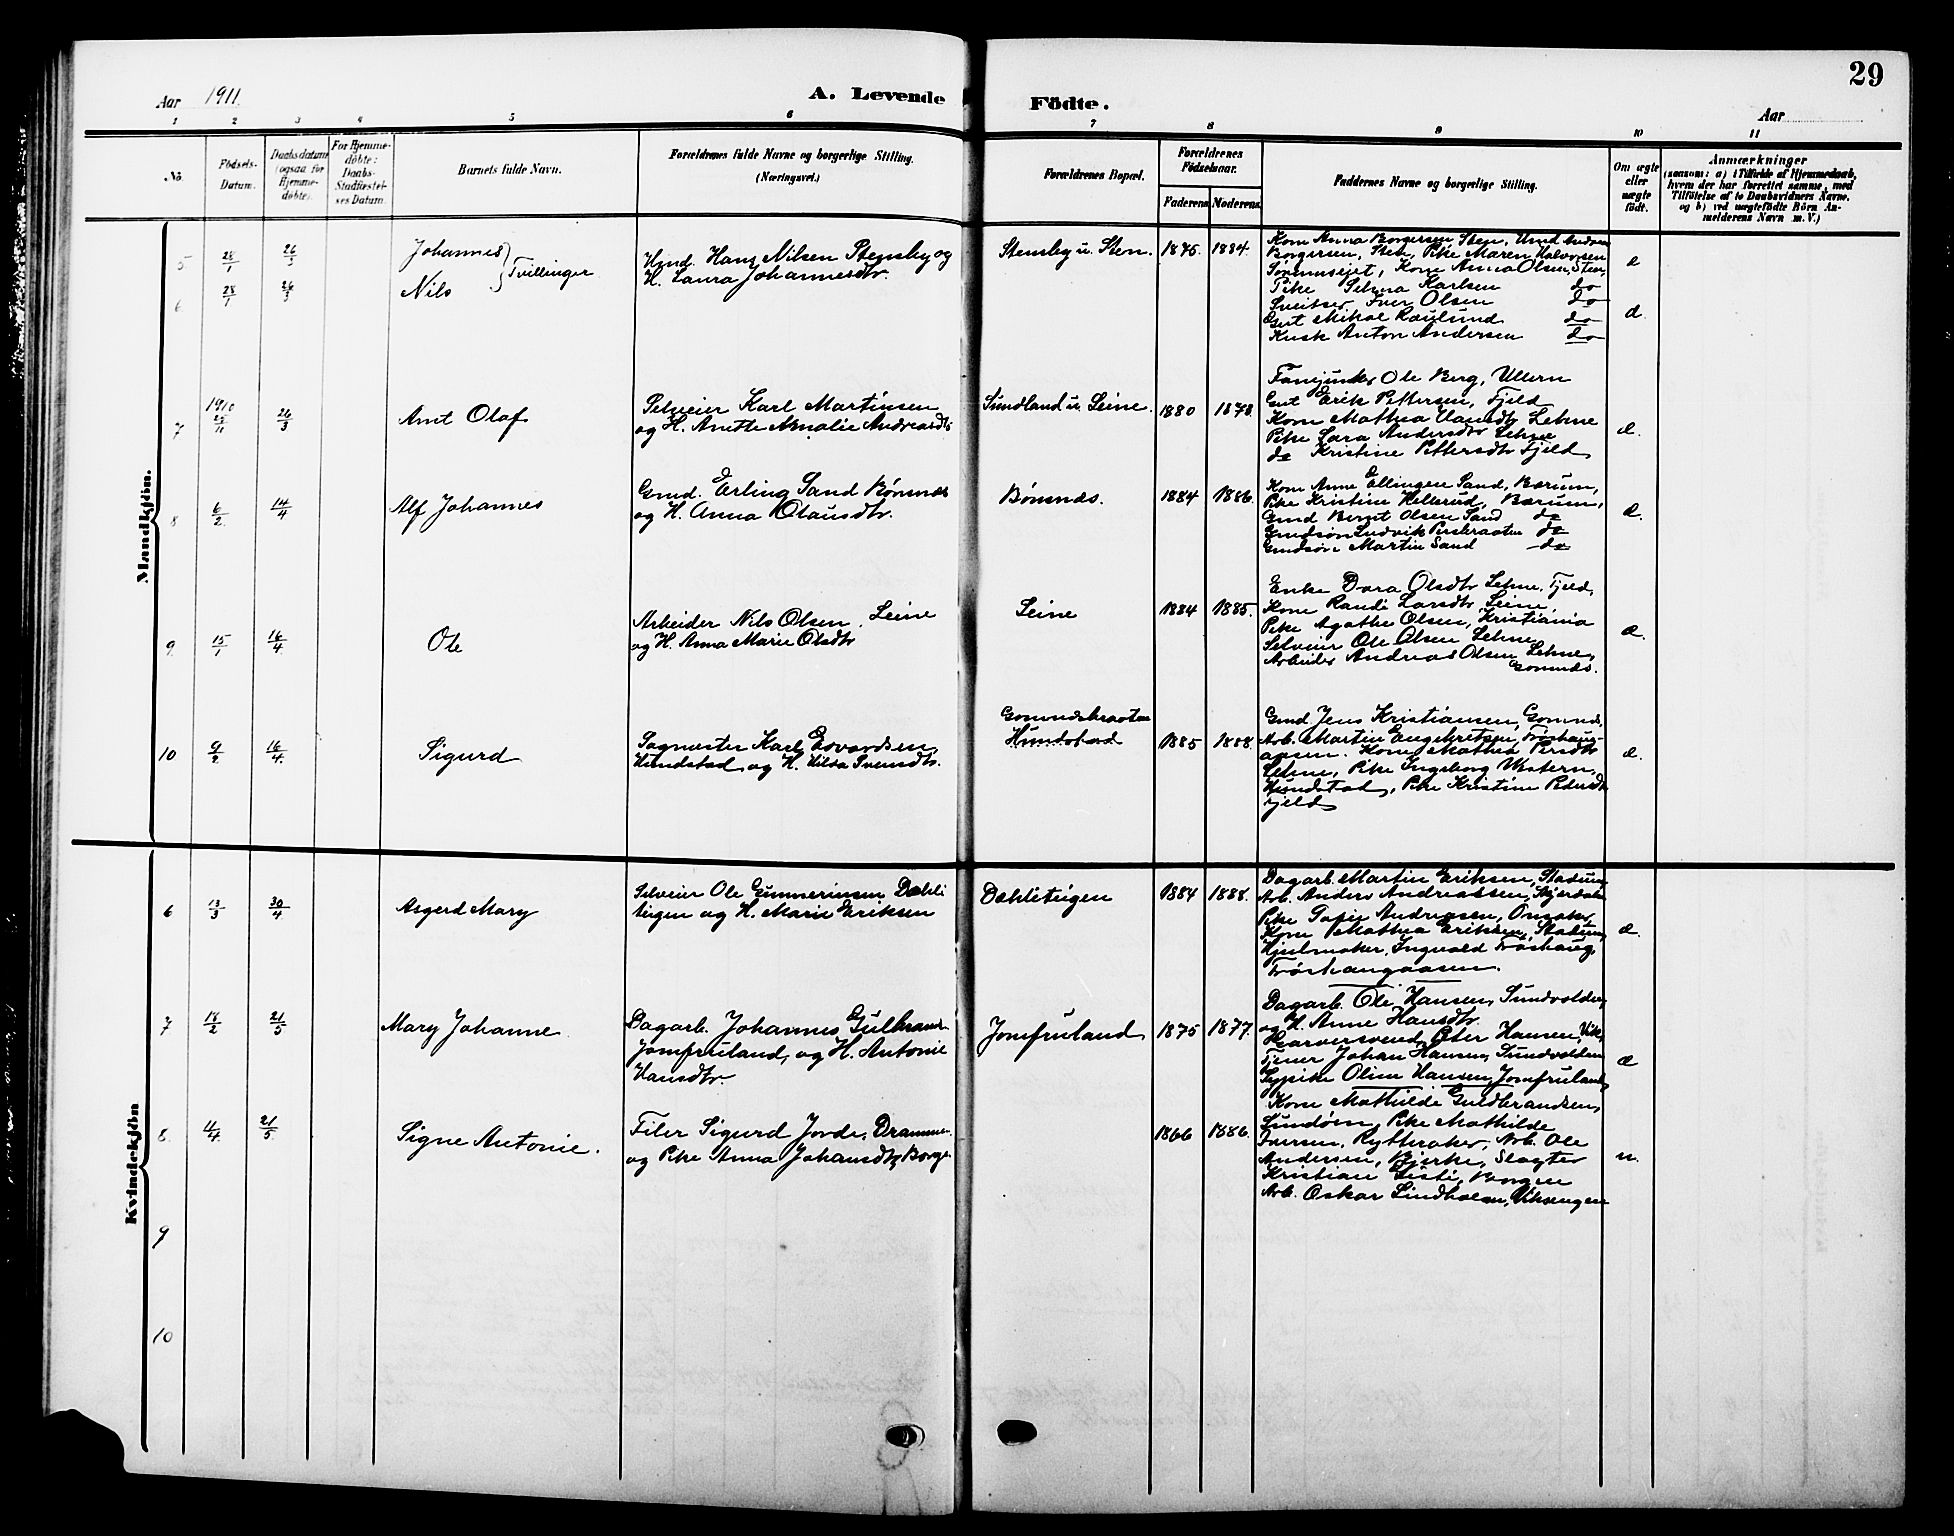 29
Aar 1911.
A. Levende Födte.
Aar
1 2 3 4 5 6 7 8 9 10 11
No.
Födsels-
Datum.
Daabsdatum
(ogsaa for
Hjemme-
döbte).
For Hjemme-
döbte:
Daabs-
Stadfæstel-
ses Datum.
Barnets fulde Navn.
Forældrenes fulde Navne og borgerlige Stilling.
(Næringsvei.)
Forældrenes Bopæl.
Forældrenes
Födselsaar.
Faderens Moderens
Faddernes Navne og borgerlige Stilling.
Om ægte
eller
uægte
födt.
Anmærkninger
(saasom: a) i Tilfælde af Hjemmedaab,
hvem der har forrettet samme, med
Tilföielse af to Daabsvidners Navne,
og b) ved uægtefödte Börn An-
melderens Navn m. V.)
Mandkjön.
5 28/1 26/3 Johannes
6 28/1 26/3 Nils
Tvillinger
Hmd. Hans Nilsen Stensby og
H. Laura Johannesdtr.
Stensby u. Sten. 1875. 1884.
Kone Anna Borgersen, Sten,
Borgersen, Sten, Pike Maren Halvorsen
Kone Anna Olsen, Sten,
Pike Selma Karlsen do
Sveitser Iver Olsen do
Gut Mikal Røulund do
Kusk Anton Andersen do
æ
æ.
7 1910 25/11 26/3 Arnt Olaf
Selveier Karl Martinsen
og H. Anette Amalie Andreasdtr
Sundland u. Leine. 1880 1878.
Fanejunker Ole Berg, Ullern
Gut Erik Pettersen, Fjeld
Kone Mathea Hansdtr Lehne
Pike Sara Andersdtr Lehne
do Kristine Pettersdtr Fjeld
æ.
8 6/2. 14/4 Alf Johannes
Gmd. Erling Sand Bønsnes
og H. Anna Olausdtr.
Bønsnes. 1884 1886.
Kone Anne Ellingsen Sand, Bærum,
Pike Kristine Hellerud, Bærum,
Gmd Bernt Olsen Sand do
Gmdsøn Ludvik Persbraaten do
Gmdsøn Martin Sand do
æ.
9. 15/1 16/4 Ole
Arbeider Nils Olsen, Leine
og H. Anna Marie Olsdtr
Leine 1884 1885.
Enke Dora Olsdtr Lehne, Fjeld,
Kone Randi Larsdtr, Leine
Pike Agathe Olsen, Kristiania
Selveier Ole Olsen Lehne
Arbeider Andreas Olsen Lehne,
Gomnes.
æ.
10 9/2 16/4. Sigurd
Sagmester Karl Edvardsen,
Hundstad og H. Hilda Svensdtr.
Gomnesbraaten
Hundstad 1885 1888.
Gmd Jens Kristiansen, Gomnes,
Arb. Martin Engebretsen, Frøshaug-
aasen. Kone Mathea Persdtr
Lehne, Pike Ingeborg Western,
Hundstad, Pike Kristine Pedersdtr
Fjeld
æ.
Kvindekjön
6 13/3 30/4 Asgerd Mary
Selveier Ole Gunneriusen Dæhli
teigen og H. Marie Eriksen
Dæhliteigen 1884 1888.
Dagarb. Martin Eriksen, Stadum,
Arb. Anders Andreassen, Skjerdalen
Pike Sofie Andreasen, Onsaker,
Kone Mathea Eriksen, Stadum,
Hjulmaker Ingvald Frøshaug,
Frøshaugaasen.
æ.
7 18/2 21/5 Mary Johanne
Dagarb. Johannes Gulbrands.
Jomfruland, og H. Antonie
Hansdtr.
Jomfruland 1875 1877.
Dagarb. Ole Hansen, Sundvolden,
og H. Anne Hansdtr.
Garversvend Peter Hansen, Vik,
Tjener Johan Hansen, Sundvolden
Sypike Oline Hansen, Jomfruland,
æ
8. 11/4. 21/5. Signe Antonie.
Filer Sigurd Jorde, Drammen
og Pike Anna Johansdtr, Borge
1866 1886.
Kone Mathilde Guldbrandsen,
Sundøen, Pike Mathilde
Iversen, Rytteraker, Arb. Ole
Andersen, Bjerke, Slagter
Kristian Listi, Borgen
Arb. Oskar Lindholm, Viksengen
u.
9
10